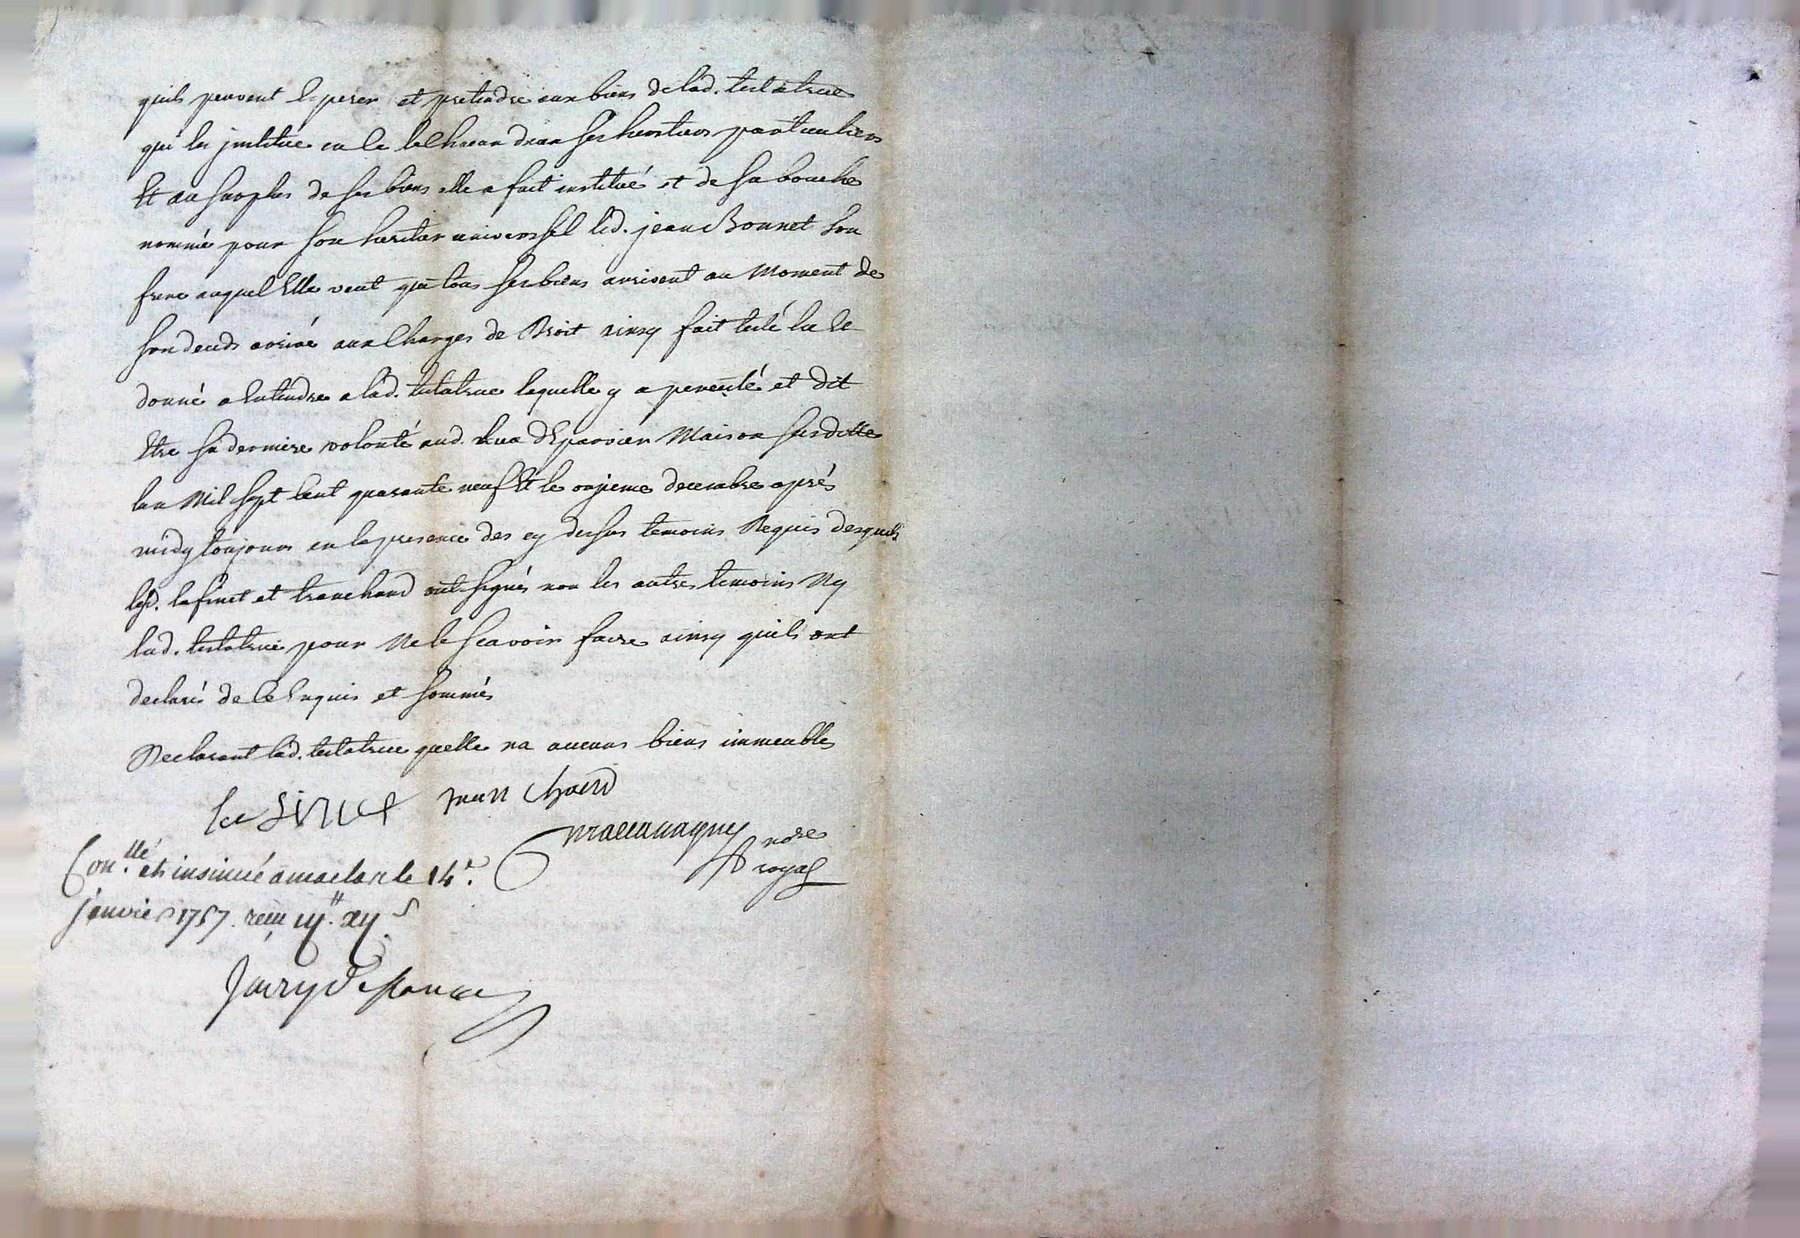 quils peuvent esperer et pretendre aux biens de lad. testatrice
qui les jnstitue en ce le chacun deux ses heritiers particuliers
Et au surplus de ses biens elle a fait institué et de sa bouche
nommé pour son heritier universsel led. jean Bonnet son
frere auquel Elle veut que tous ses biens arrivent au Moment de
son deceds arrivé aux Charges de Droit ainsy fait testé lu Et
donné a Entendre a lad. testatrice laquelle y a percisté et dit
Etre sa derniere volonté aud. lieu Maison susditte
lan Mil sept Cent quarante neuf Et le onzieme decembre après
midy toujours en la presence des cy dessus temoins Requis desquels
lesd. lafinet et tranchand ont signés non les autres temoins Ny
lad. testatrice pour Ne le scavoir faire ainsy quils ont
declaré de ce Enquis et sommés
Declarant lad. testatrice quelle na aucuns biens immeubles
not.re
royal
Con.llé et insinué a le 14.e
janvier 1757. receu iij.# xij.s